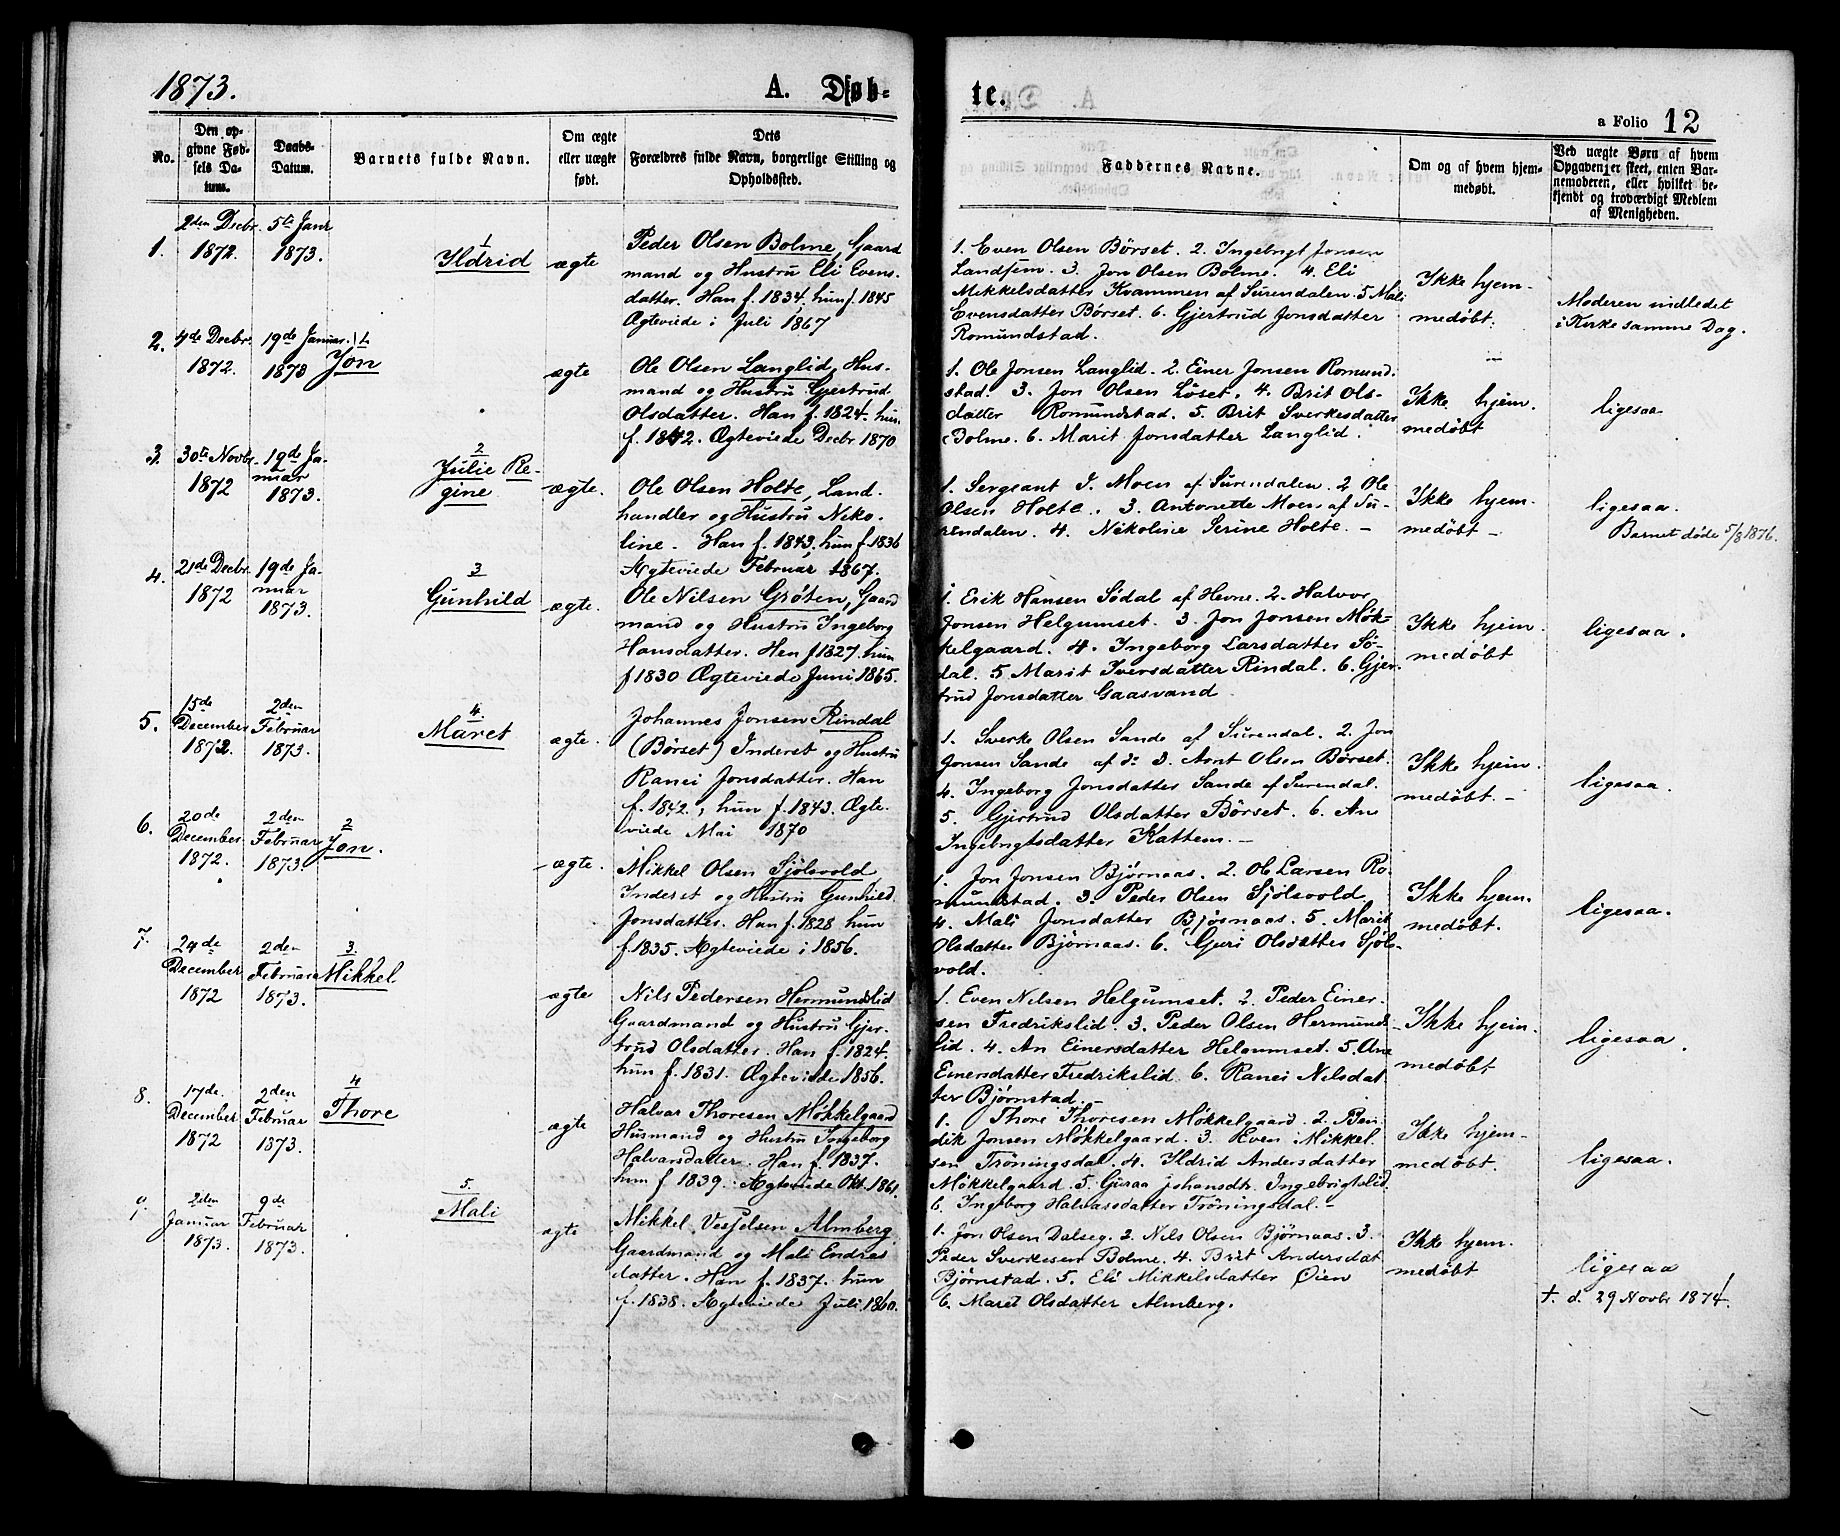 1873.
A. Døb-
te.
a Folio 12
No.
Den op-
givne Fød-
sels Da-
tum.
Daabs-
Datum.
Barnets fulde Navn.
Om ægte
eller uægte
født.
Dets
Forældres fulde Navn, borgerlige Stilling og
Opholdssted.
Faddernes Navne.
Om og af hvem hjem-
medøbt.
Ved uægte Børn af hvem
Opgaven er skeet, enten Bar-
nemoderen, eller hvilket be-
kjendt og troværdigt Medlem
af Menigheden.
1.
2den Decbr.
1872.
5te Janr
1873.
1
Ildrid
ægte
Peder Olsen Bolme, Gaard
mand og Hustru Eli Evens-
datter. Han f. 1834, hun f. 1845
Ægteviede i Juli 1867
1. Even Olsen Børset. 2. Ingebrigt Jonsen
Landsem. 3. Jon Olsen Bolme. 4. Eli
Mikkelsdatter Kvammen af Surendalen. 5 Mali
Evensdatter Børset. 6. Gjertrud Jonsdatter
Romundstad.
Ikke hjem-
medøbt.
Moderen indledet
i Kirke samme Dag.
2.
4de Decbr.
1872.
19de Januar
1873
1
Jon
ægte
Ole Olsen Langlid, Hus-
mand og Hustru Gjertrud
Olsdatter. Han f. 1824. hun
f. 1842. Ægteviede Decbr 1870
1. Ole Jonsen Langlid. 2. Einer Jonsen Romund-
stad. 3. Jon Olsen Løset. 4. Brit Ols-
datter Romundstad. 5. Brit Sverkesdatter
Bolme. 6. Marit Jonsdatter Langlid.
Ikke hjem-
medøbt
ligesaa
3.
30te Novbr.
1872
19de Ja-
nuar
1873.
2
Julie Re-
gine
ægte.
Ole Olsen Holte, Land-
handler og Hustru Niko-
line. Han f. 1843, hun f. 1836
Ægteviede Februar 1867.
1. Sergeant J. Moen af Surendalen. 2 Ole
Olsen Holte. 3. Antonette Moen af Su-
rendalen. 4. Nikoline Serine Holte. -
Ikke hjem-
medøbt -
ligesaa.
Barnet døde 5/8 1876.
4.
21de Decbr.
1872
19de Ja-
nuar
1873.
3
Gunhild
ægte.
Ole Nilsen Grøten, Gaard
mand og Hustru Ingeborg
Hansdatter. Han f 1827. hun
f 1830 Ægteviede Juni 1865.
1. Erik Hansen Södal af Hevne. 2. Halvor
Jonsen Helgumset. 3. Jon Jonsen Møk-
kelgaard. 4. Ingeborg Larsdatter Sö-
dal. 5 Marit Iversdatter Rindal. 6. Gjer-
trud Jonsdatter Gaasvand.
Ikke hjem-
medøbt
ligesaa.
5.
15de
December
1872.
2den
Februar
1873.
4.
Maret
ægte.
Johannes Jonsen Rindal
(Børset) Inderst og Hustru
Ranei Jonsdatter. Han
f. 1842., hun f. 1843. Ægte-
viede Mai 1870
1. Sverke Olsen Sande af Surendal. 2. Jon
Jonsen Sande af do 3. Arnt Olsen Børset.
4. Ingeborg Jonsdatter Sande af Surendal.
5. Gjertrud Olsdatter Børset. 6. An
Ingebrigtsdatter Kattem. -
Ikke hjem-
medøbt. -
ligesaa.
6.
20de
December
1872.
2den
Februar
1873.
2
Jon.
ægte.
Mikkel Olsen Sjölsvold,
Inderst og Hustru Gunhild
Jonsdatter. Han f. 1828 hun
f. 1835. Ægteviede i 1856.
1. Jon Jonsen Bjørnaas. 2. Ol Larsen Ro-
mundstad. 3. Peder Olsen Sjölsvold.
4. Mali Jonsdatter Bjørnaas. 5. Marit
Olsdatter Bjørnaas. 6. Guri Olsdatter Sjöls-
vold.
Ikke hjem-
medøbt.
ligesaa.
7.
24de
December
1872
2den
Februar
1873.
3.
Mikkel
ægte
Nils Pedersen Hermundslid
Gaardmand og Hustru Gjer-
trud Olsdatter. Han f. 1824.
hun f. 1831. Ægteviede 1856.
1. Even Nilsen Helgumset. 2. Peder Einer-
sen Fredrikslid. 3. Peder Olsen Hermunds-
lid. 4. An Einersdatter Helgumset. 5. Ane
Einersdatter Fredrikslid. 6. Ranei Nilsdat-
ter Bjørnstad.
Ikke hjem-
medøbt
ligesaa.
8.
17de.
December
1872
2den
Februar
1873.
4
Thore
ægte
Halvar Thoresen Møkkelgaard
Husmand og Hustru Ingeborg
Halvarsdatter. Han f. 1837.
hun f 1839. Ægteviede Okt. 1861.
1. Thore Thoresen Møkkelgaard. 2. Ben-
dik Jonsen Møkkelgaard. 3. Even Mikkel-
sen Tröningsdal. 4. Ildrid Andersdatter
Møkkelgaard. 5. Guraa Johansdtr. Ingebrigtslid
6. Ingeborg Halvarsdatter Tröningsdal. -
Ikke hjem-
medøbt.
ligesaa.
9.
2den
Januar
1873.
9de
Februar
1873.
5.
Mali
ægte
Mikkel Vesselsen Almberg
Gaardmand og Mali Endres
datter. Han f. 1837. hun
f. 1838. Ægteviede Juli 1860.
1. Jon Olsen Dalseg. 2. Nils Olsen Bjørnaas. 3.
Peder Sverkesen Bolme. 4. Brit Andersdat
Bjørnstad. 5. Eli Mikkelsdatter Øien
6. Maret Olsdatter Almberg.
Ikke hjem-
medøbt
ligesaa
†. d. 29 Novbr 1874.